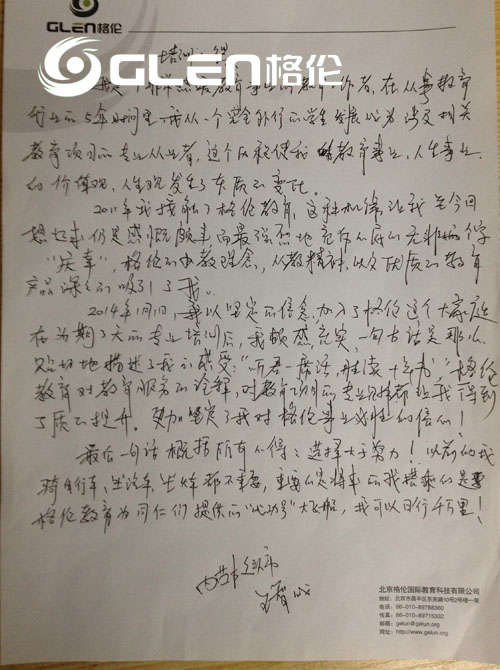 GLEN格伦
培训心得
GLEN格伦
我是一个非常热爱教育事业的教育工作者,在从事教育
行业的5年时间里,我从一个完全外行的学生发展成为涉及相关
教育项目的专业从业者,这个历程使我的教育事业,人生事业
的价值观、人生观发生了本质的变化。
2011年我接触了格伦教育,这种机缘让我至今回
想起来仍是感慨颇丰,而最强烈地充斥人心的无非两个字
“庆幸”,格伦的办教理念,从教精神,以及优质的教育
产品深深的吸引了我。
2014年1月1日,我以坚定的信念,加入了格伦这个大家庭
在为期7天的专业培训后,我颇感充实,一句古话是那么
贴切地描述了我的感受:“听君一席话,胜读十年书”,格伦
教育对教育服务的诠释,对教育项目的专业见解都让我得到
了质的提升。更加坚定了我对格伦事业必胜的信心!
最后一句话概括所有心得:选择大于努力!以前的我
骑自行车、坐汽车、坐火车都不重要,重要的是将来的我搭乘的是
格伦教育为同仁们提供的“成功号”大飞船,我可以日行千万里!
内蒙古赤峰市
北京格伦国际教育科技有限公司
地址:北京市昌平区东务路10号2号楼一层
电话:86-010-89788360
传真:86-010-89715332
邮箱:gelun@gelun.org
网址:http://www.gelun.org